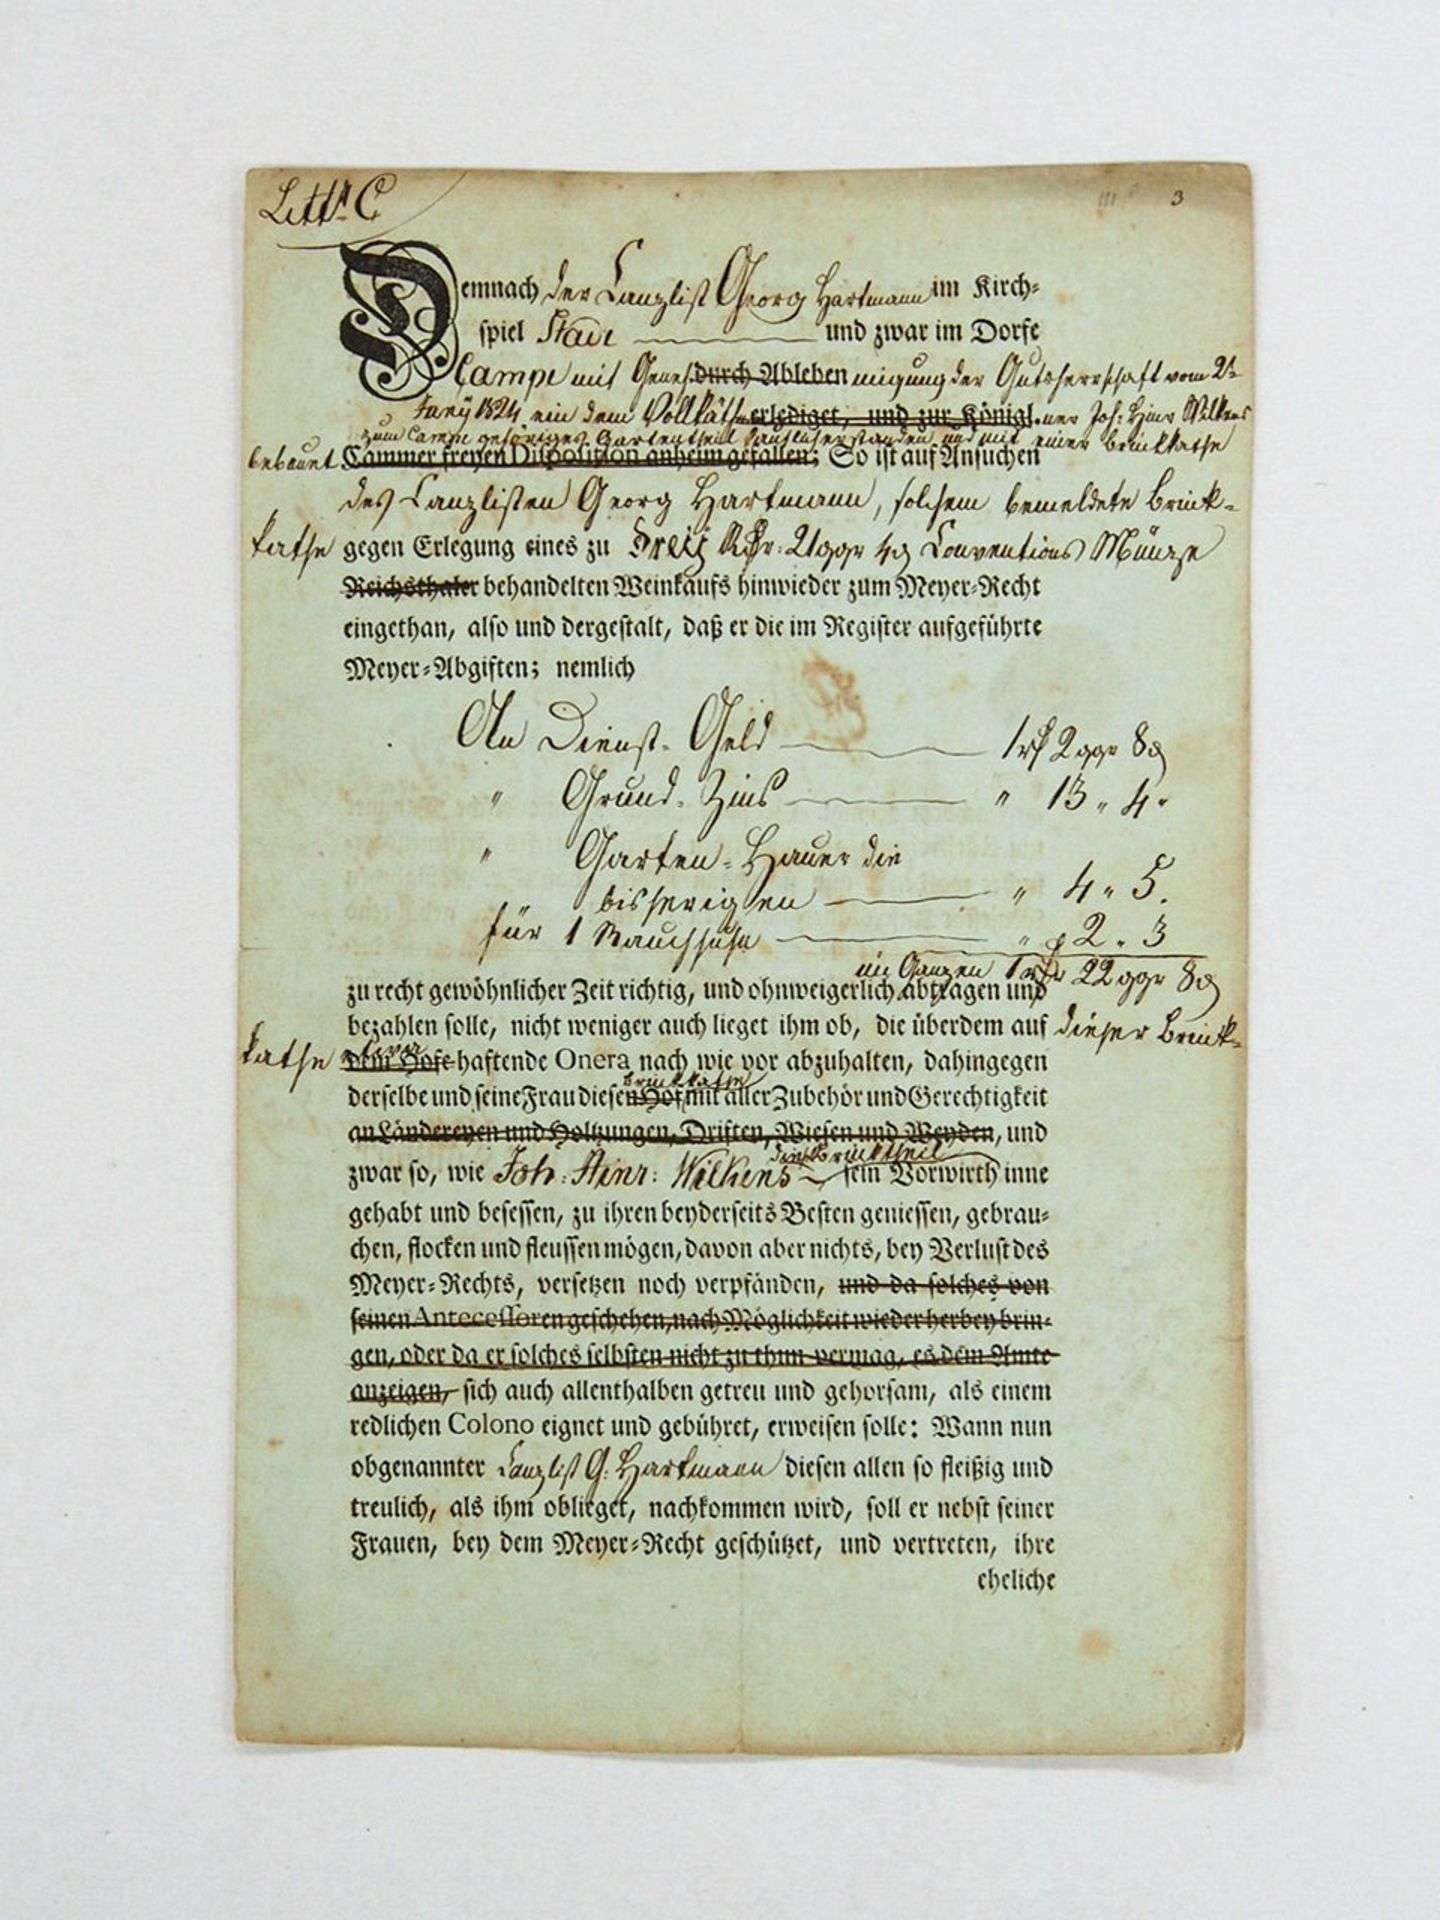 Littr C.
3
Demnach der Canzlist Georg Hartmann im Kirch-
spiel Stade und zwar im Dorfe
Campe mit Geneh durch Ableben migung der Gutsherrschaft vom 2t
1824 ein dem Vollkäth erlediget, und zur Königl. ner Joh: Hinr Wilkens
zum Camp gehöriges Gartentheil käuflich erstanden und mit einer Brinkkathe
bebauet Cammer freyen Disposition anheim gefallen; So ist auf Ansuchen
des Canzlisten Georg Hartmann, solchem bemeldete Brink-
kathe gegen Erlegung eines zu Drey Rthr: 21 ggr 4 d Conventions Münze
Reichsthaler behandelten Weinkaufs hinwieder zum Meyer-Recht
eingethan, also und dergestalt, daß er die im Register aufgeführte
Meyer-Abgiften; nemlich
An Dienst-Geld 1 rthr 2 ggr 8 d
" Grund-Zins " 13 " 4 "
" Garten-Hauer die
bisherigen " 4 " 5.
für 1 Rauchhuhn " 2 " 3
im Ganzen 1 rthr 22 ggr 8 d
zu recht gewöhnlicher Zeit richtig, und ohnweigerlich abtragen und
bezahlen solle, nicht weniger auch lieget ihm ob, die überdem auf dieser Brink-
kathe etwa dem Hofe haftende Onera nach wie vor abzuhalten, dahingegen
Brinkkathe
derselbe und seine Frau diesen Hof mit aller Zubehör und Gerechtigkeit
an Länderenen und Holtzungen, Driften, Wiesen und Weyden, und
den Brinktheil
zwar so, wie Joh: Hinr: Wilkens sein Vorwirth inne
gehabt und besessen, zu ihren beyderseits Besten geniessen, gebrau-
chen, flocken und fleussen mögen, davon aber nichts, bey Verlust des
Meyer-Rechts, versetzen noch verpfänden, und da solches von
seinen Antecessoren geschehen, nach Möglichkeit wieder herbey brin-
gen, oder da er solches selbsten nicht zu thun vermag, es dem Amte
anzeigen, sich auch allenthalben getreu und gehorsam, als einem
redlichen Colono eignet und gebühret, erweisen solle: Wann nun
obgenannter Canzlist G. Hartmann diesen allen so fleißig und
treulich, als ihm oblieget, nachkommen wird, soll er nebst seiner
Frauen, bey dem Meyer-Recht geschützet, und vertreten, ihre
eheliche